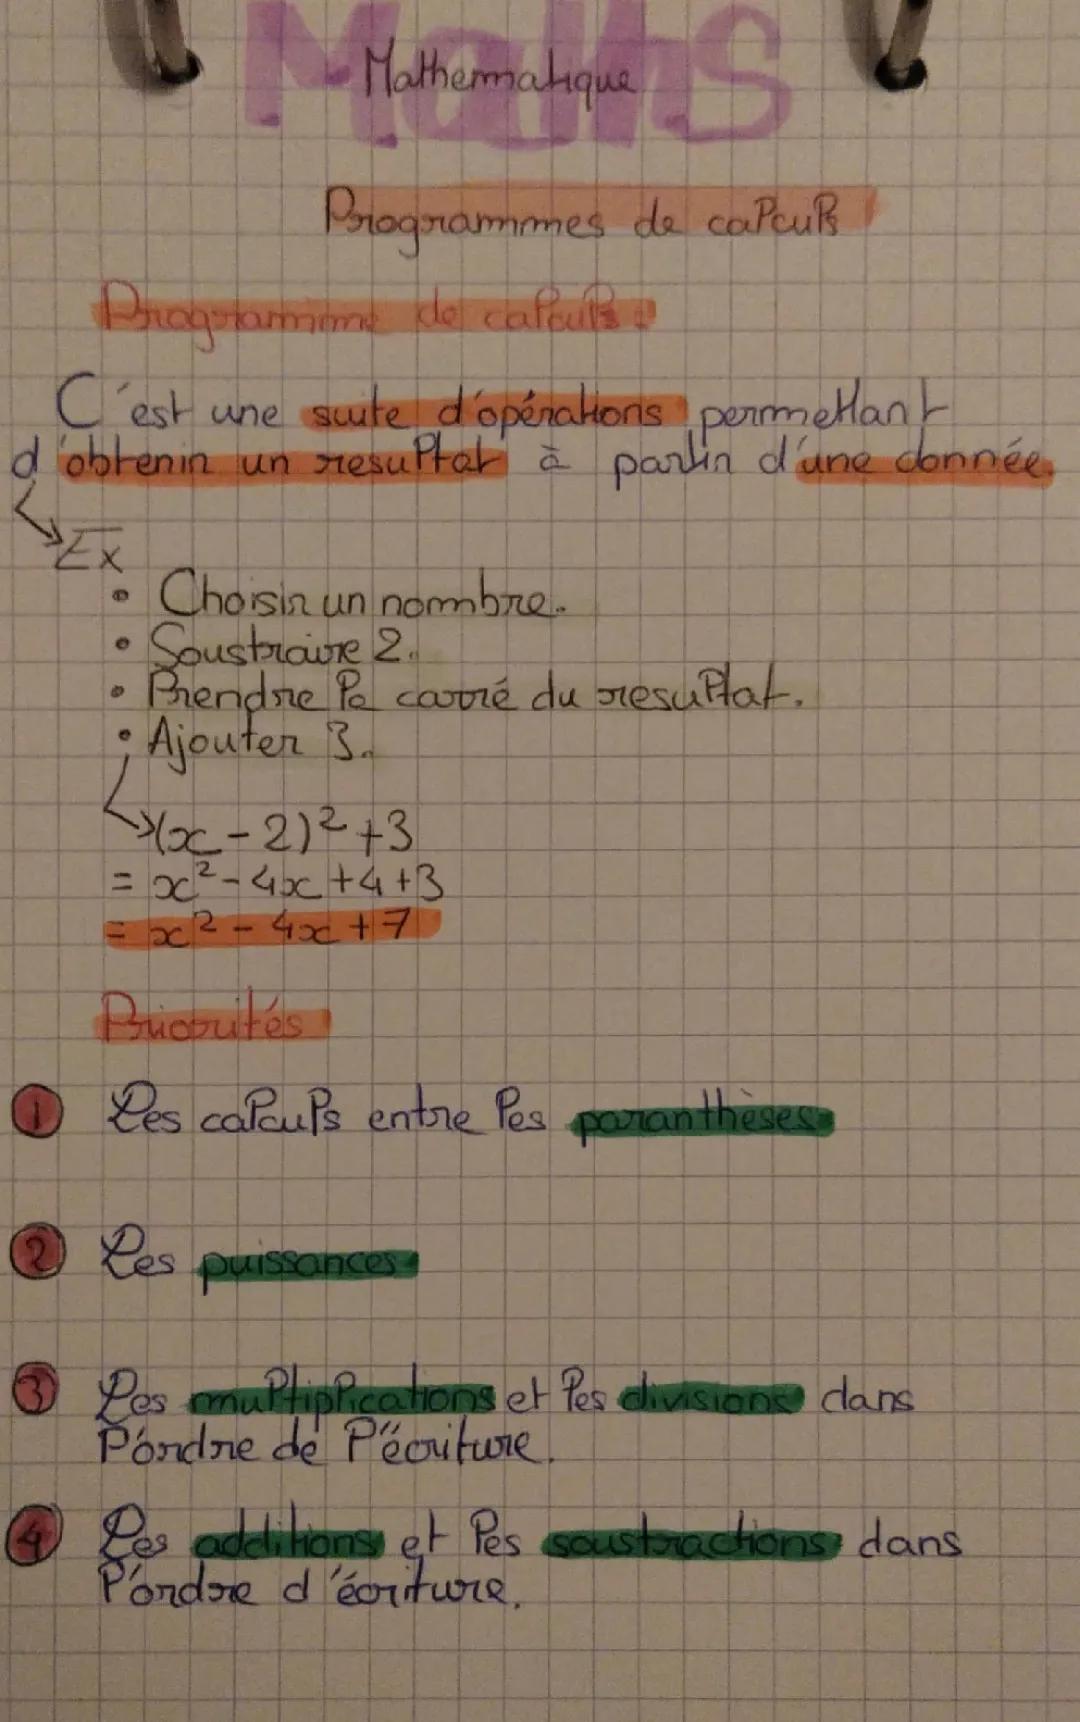 Maths
Mathematique
Programmes de calculs
Programme de calculs :
C'est une suite d'opérations permettant
d'obtenir un resultat à partir d'une donnée.
Ex
• Choisir un nombre.
• Soustraire 2.
• Prendre le carré du resultat.
• Ajouter 3.
(x - 2)² + 3
= x² - 4x + 4 + 3
= x² - 4x + 7
Priorités
1 Les calculs entre les paranthèses.
2 Les puissances
3 Les multiplications et les divisions dans
l'ordre de l'écriture.
4 Les additions et les soustractions dans
l'ordre d'écriture.